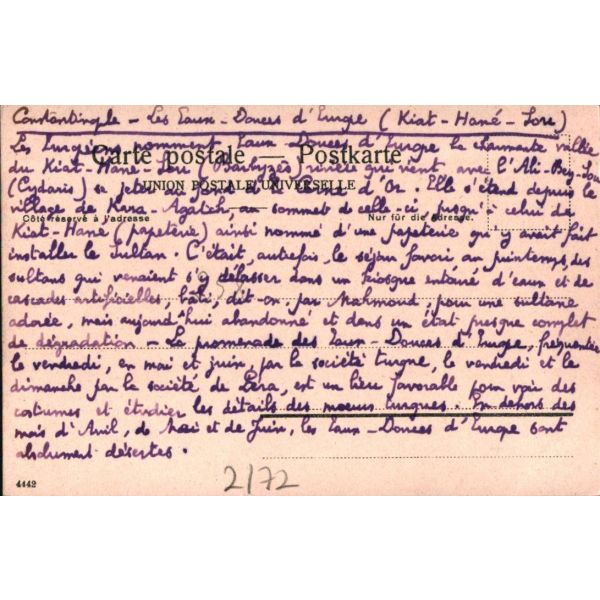 Constantinople - Les Eaux-Douces d'Europe (Kiat-Hané-Sou)
Les Européens nomment Eaux-Douces d'Europe la charmante vallée
Carte postale — Postkarte
du Kiat-Hané-Sou (Barbyzès) rivière qui vient avec l'Ali-Bey-Sou
UNION POSTALE UNIVERSELLE
(Cydaris) se jeter dans la Corne d'Or. Elle s'étend depuis le
village de Kara-Agatch, au sommet de celle-ci, jusqu'à celui de
Côté réservé à l'adresse
Nur für die Adresse.
Kiat-Hané (papeterie) ainsi nommé d'une papeterie qu'y avait fait
installer le Sultan. C'était, autrefois, le séjour favori au printemps, des
sultans qui venaient s'y délasser dans un kiosque entouré d'eaux et de
cascades artificielles, bâti, dit-on, par Mahmoud, pour une sultane
adorée, mais aujourd'hui abandonné et dans un état presque complet
de dégradation - La promenade des Eaux-Douces d'Europe, fréquentée
le vendredi, en mai et juin, par la société turque, le vendredi et le
dimanche par la société de Péra, est un lieu favorable pour voir des
costumes et étudier les détails des moeurs turques. En dehors des
mois d'Avril, de Mai et de Juin, les Eaux-Douces d'Europe sont
absolument désertes.
4442
2/72